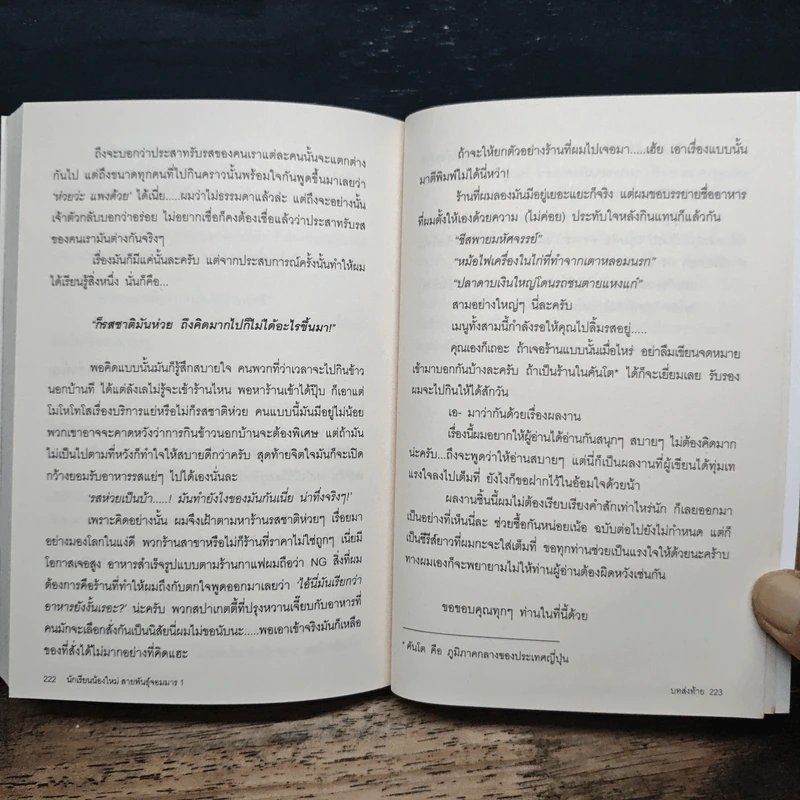 ถึงจะบอกว่าประสาทรับรสของคนเราแต่ละคนนั้นจะแตกต่าง
กันไป แต่ถึงขนาดทุกคนที่ไปกินคราวนั้นพร้อมใจกันพูดขึ้นมาเลยว่า
‘ห่วยว่ะ แพงด้วย’ ได้เนี่ย.....ผมว่าไม่ธรรมดาแล้วล่ะ แต่ถึงจะอย่างนั้น
เจ้าตัวกลับบอกว่าอร่อย ไม่อยากเชื่อก็คงต้องเชื่อแล้วว่าประสาทรับรส
ของคนเรามันต่างกันจริงๆ
เรื่องมันก็มีแค่นั้นละครับ แต่จากประสบการณ์ครั้งนั้นทำให้ผม
ได้เรียนรู้สิ่งหนึ่ง นั่นก็คือ...
“ก็รสชาติมันห่วย ถึงคิดมากไปก็ไม่ได้อะไรขึ้นมา!”
พอคิดแบบนั้นมันก็รู้สึกสบายใจ คนพวกที่ว่าเวลาจะไปกินข้าว
นอกบ้านที ได้แต่ลังเลไม่รู้จะเข้าร้านไหน พอหาร้านเข้าได้ปุ๊บ ก็เอาแต่
โมโหโทโสเรื่องบริการแย่หรือไม่ก็รสชาติห่วย คนแบบนี้มันมีอยู่ไม่น้อย
พวกเขาอาจจะคาดหวังว่าการกินข้าวนอกบ้านจะต้องพิเศษ แต่ถ้ามัน
ไม่เป็นไปตามที่หวังก็ทำใจให้สบายดีกว่าครับ สุดท้ายจิตใจมันก็จะเปิด
กว้างยอมรับอาหารรสแย่ๆ ไปได้เองนั่นละ
‘รสห่วยเป็นบ้า.....! มันทำยังไงของมันกันเนี่ย น่าทึ่งจริงๆ!’
เพราะคิดอย่างนั้น ผมจึงเฝ้าตามหาร้านรสชาติห่วยๆ เรื่อยมา
อย่างมองโลกในแง่ดี พวกร้านสาขาหรือไม่ก็ร้านที่ราคาไม่ใช่ถูกๆ เนี่ยมี
โอกาสเจอสูง อาหารสำเร็จรูปแบบตามร้านกาแฟผมถือว่า NG สิ่งที่ผม
ต้องการคือร้านที่ทำให้ผมถึงกับตกใจพูดออกมาเลยว่า ‘ไอ้นี่มันเรียกว่า
อาหารยังงั้นเรอะ?’ น่ะครับ พวกสปาเกตตี้ที่ปรุงหวานเจี๊ยบกับอาหารที่
คนมักจะเลือกสั่งกันเป็นนิสัยนี่ผมไม่ขอนับนะ.....พอเอาเข้าจริงมันก็เหลือ
ของที่สั่งได้ไม่มากอย่างที่คิดแฮะ
222 นักเรียนน้องใหม่ สายพันธุ์จอมมาร 1
ถ้าจะให้ยกตัวอย่างร้านที่ผมไปเจอมา.....เฮ้ย เอาเรื่องแบบนั้น
มาตีพิมพ์ไม่ได้นี่หว่า!
ร้านที่ผมลองมันมีอยู่เยอะแยะก็จริง แต่ผมขอบรรยายชื่ออาหาร
ที่ผมตั้งให้เองด้วยความ (ไม่ค่อย) ประทับใจหลังกินแทนก็แล้วกัน
“ชีสพายมหัศจรรย์”
“หม้อไฟเครื่องในไก่ที่ทำจากเตาหลอมนรก”
“ปลาดาบเงินใหญ่โดนรถชนตายแหงแก๋”
สามอย่างใหญ่ๆ นี่ละครับ
เมนูทั้งสามนี้กำลังรอให้คุณไปลิ้มรสอยู่.....
คุณเองก็เถอะ ถ้าเจอร้านแบบนั้นเมื่อไหร่ อย่าลืมเขียนจดหมาย
เข้ามาบอกกันบ้างละครับ ถ้าเป็นร้านในคันโต* ได้ก็จะเยี่ยมเลย รับรอง
ผมจะไปกินให้ได้สักวัน
เอ- มาว่ากันด้วยเรื่องผลงาน
เรื่องนี้ผมอยากให้ผู้อ่านได้อ่านกันสนุกๆ สบายๆ ไม่ต้องคิดมาก
น่ะครับ...ถึงจะพูดว่าให้อ่านสบายๆ แต่นี่ก็เป็นผลงานที่ผู้เขียนได้ทุ่มเท
แรงใจลงไปเต็มที่ ยังไงก็ขอฝากไว้ในอ้อมใจด้วยน้า
ผลงานชิ้นนี้ผมไม่ต้องเรียบเรียงคำสักเท่าไหร่นัก ก็เลยออกมา
เป็นอย่างที่เห็นนี่ละ ช่วยซื้อกันหน่อยเน้อ ฉบับต่อไปยังไม่กำหนด แต่ก็
เป็นซีรีส์ยาวที่ผมกะจะใส่เต็มที่ ขอทุกท่านช่วยเป็นแรงใจให้ด้วยนะคร้าบ
ทางผมเองก็จะพยายามไม่ให้ท่านผู้อ่านต้องผิดหวังเช่นกัน
ขอขอบคุณทุกๆ ท่านในที่นี้ด้วย
* คันโต คือ ภูมิภาคกลางของประเทศญี่ปุ่น
บทส่งท้าย 223